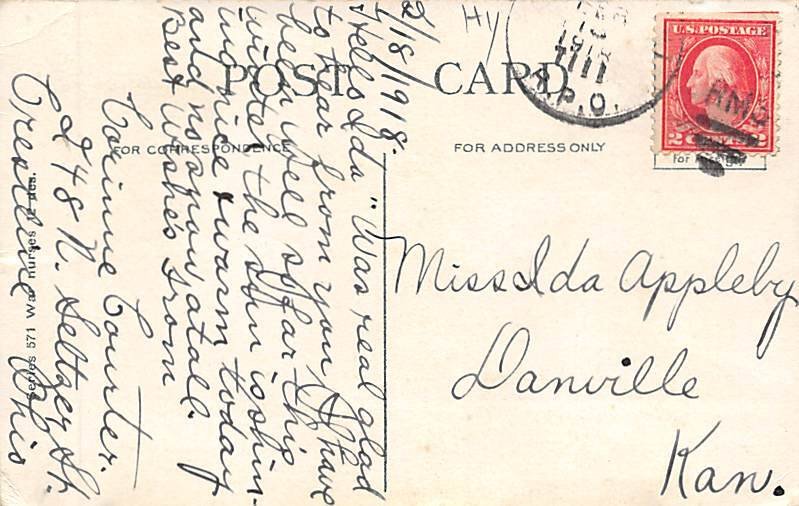 POST CARD
FOR CORRESPONDENCE
FOR ADDRESS ONLY
2/18/1918.
Hello Ida "Was real glad
to hear from you. I have
been well so far this
winter the sun is shin-
ing nice & warm today
and no snow atall.
Best Wishes from
Corinne Courter.
248 N. Seltzer St.
Crestline Ohio
Miss Ida Appleby
Danville
Kan.
U.S. POSTAGE
2 CENTS 2
R.P.O.
RMS
1918
Series 571 War nurses 12 des.